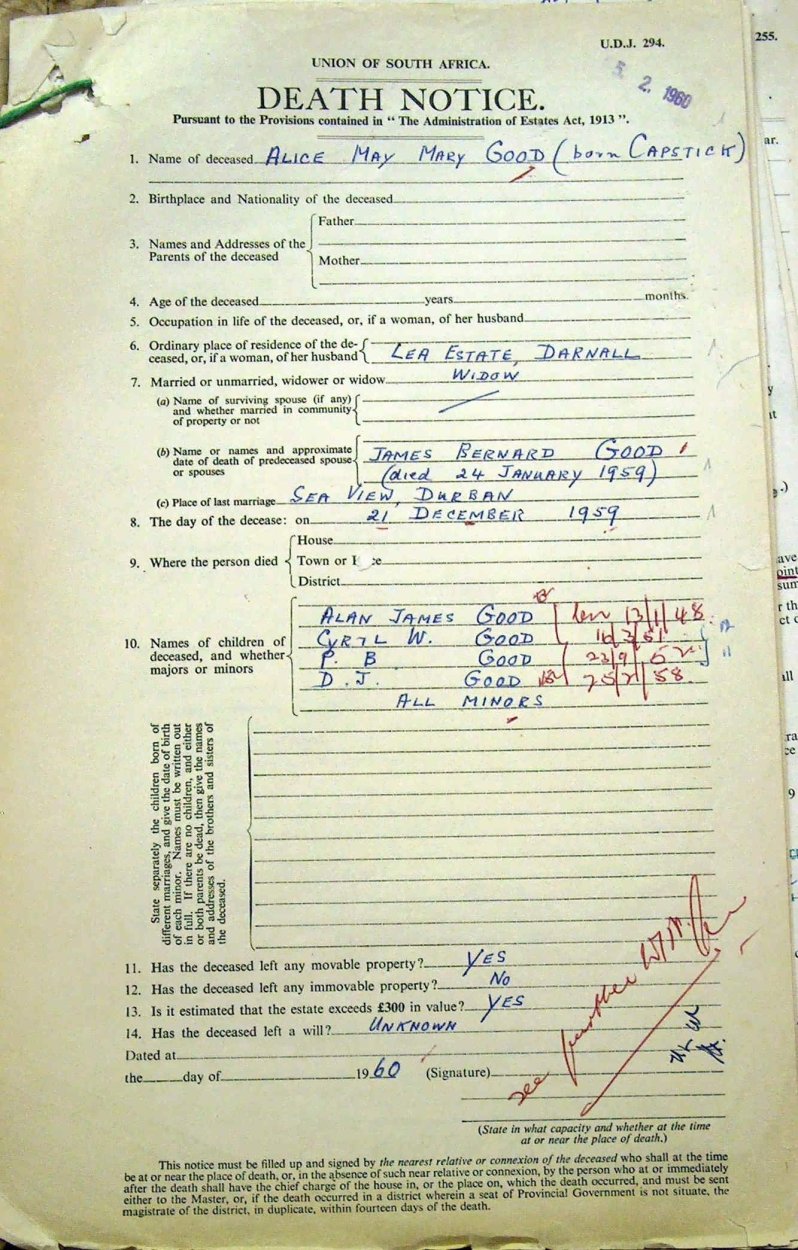 255.
U.D.J. 294.
UNION OF SOUTH AFRICA.
2. 1960
DEATH NOTICE.
Pursuant to the Provisions contained in "The Administration of Estates Act, 1913".
1. Name of deceased ALICE MAY MARY GOOD (born CAPSTICK)
2. Birthplace and Nationality of the deceased
3. Names and Addresses of the Parents of the deceased
Father
Mother
4. Age of the deceased years months.
5. Occupation in life of the deceased, or, if a woman, of her husband
6. Ordinary place of residence of the de-
ceased, or, if a woman, of her husband LEA ESTATE, DARNALL
7. Married or unmarried, widower or widow WIDOW
(a) Name of surviving spouse (if any)
and whether married in community
of property or not
(b) Name or names and approximate
date of death of predeceased spouse
or spouses
JAMES BERNARD GOOD
(died 24 JANUARY 1959)
(c) Place of last marriage SEA VIEW, DURBAN
8. The day of the decease: on 21 DECEMBER 1959
9. Where the person died
House
Town or
District
10. Names of children of
deceased, and whether
majors or minors
ALAN JAMES GOOD born 13/1/48
CYRIL W. GOOD 16/3/51
P. B GOOD 23/9/52
D. J. GOOD 58
ALL MINORS
State separately the children born of
different marriages, and give the date of birth
of each minor. Names must be written out
in full. If there are no children, and either
or both parents be dead, then give the names
and addresses of the brothers and sisters of
the deceased.
11. Has the deceased left any movable property? YES
12. Has the deceased left any immovable property? NO
13. Is it estimated that the estate exceeds £300 in value? YES
14. Has the deceased left a will? UNKNOWN
Dated at
the day of 1960 (Signature)
see further
(State in what capacity and whether at the time
at or near the place of death.)
This notice must be filled up and signed by the nearest relative or connexion of the deceased who shall at the time
be at or near the place of death, or, in the absence of such near relative or connexion, by the person who at or immediately
after the death shall have the chief charge of the house in, or the place on, which the death occurred, and must be sent
either to the Master, or, if the death occurred in a district wherein a seat of Provincial Government is not situate, the
magistrate of the district, in duplicate, within fourteen days of the death.